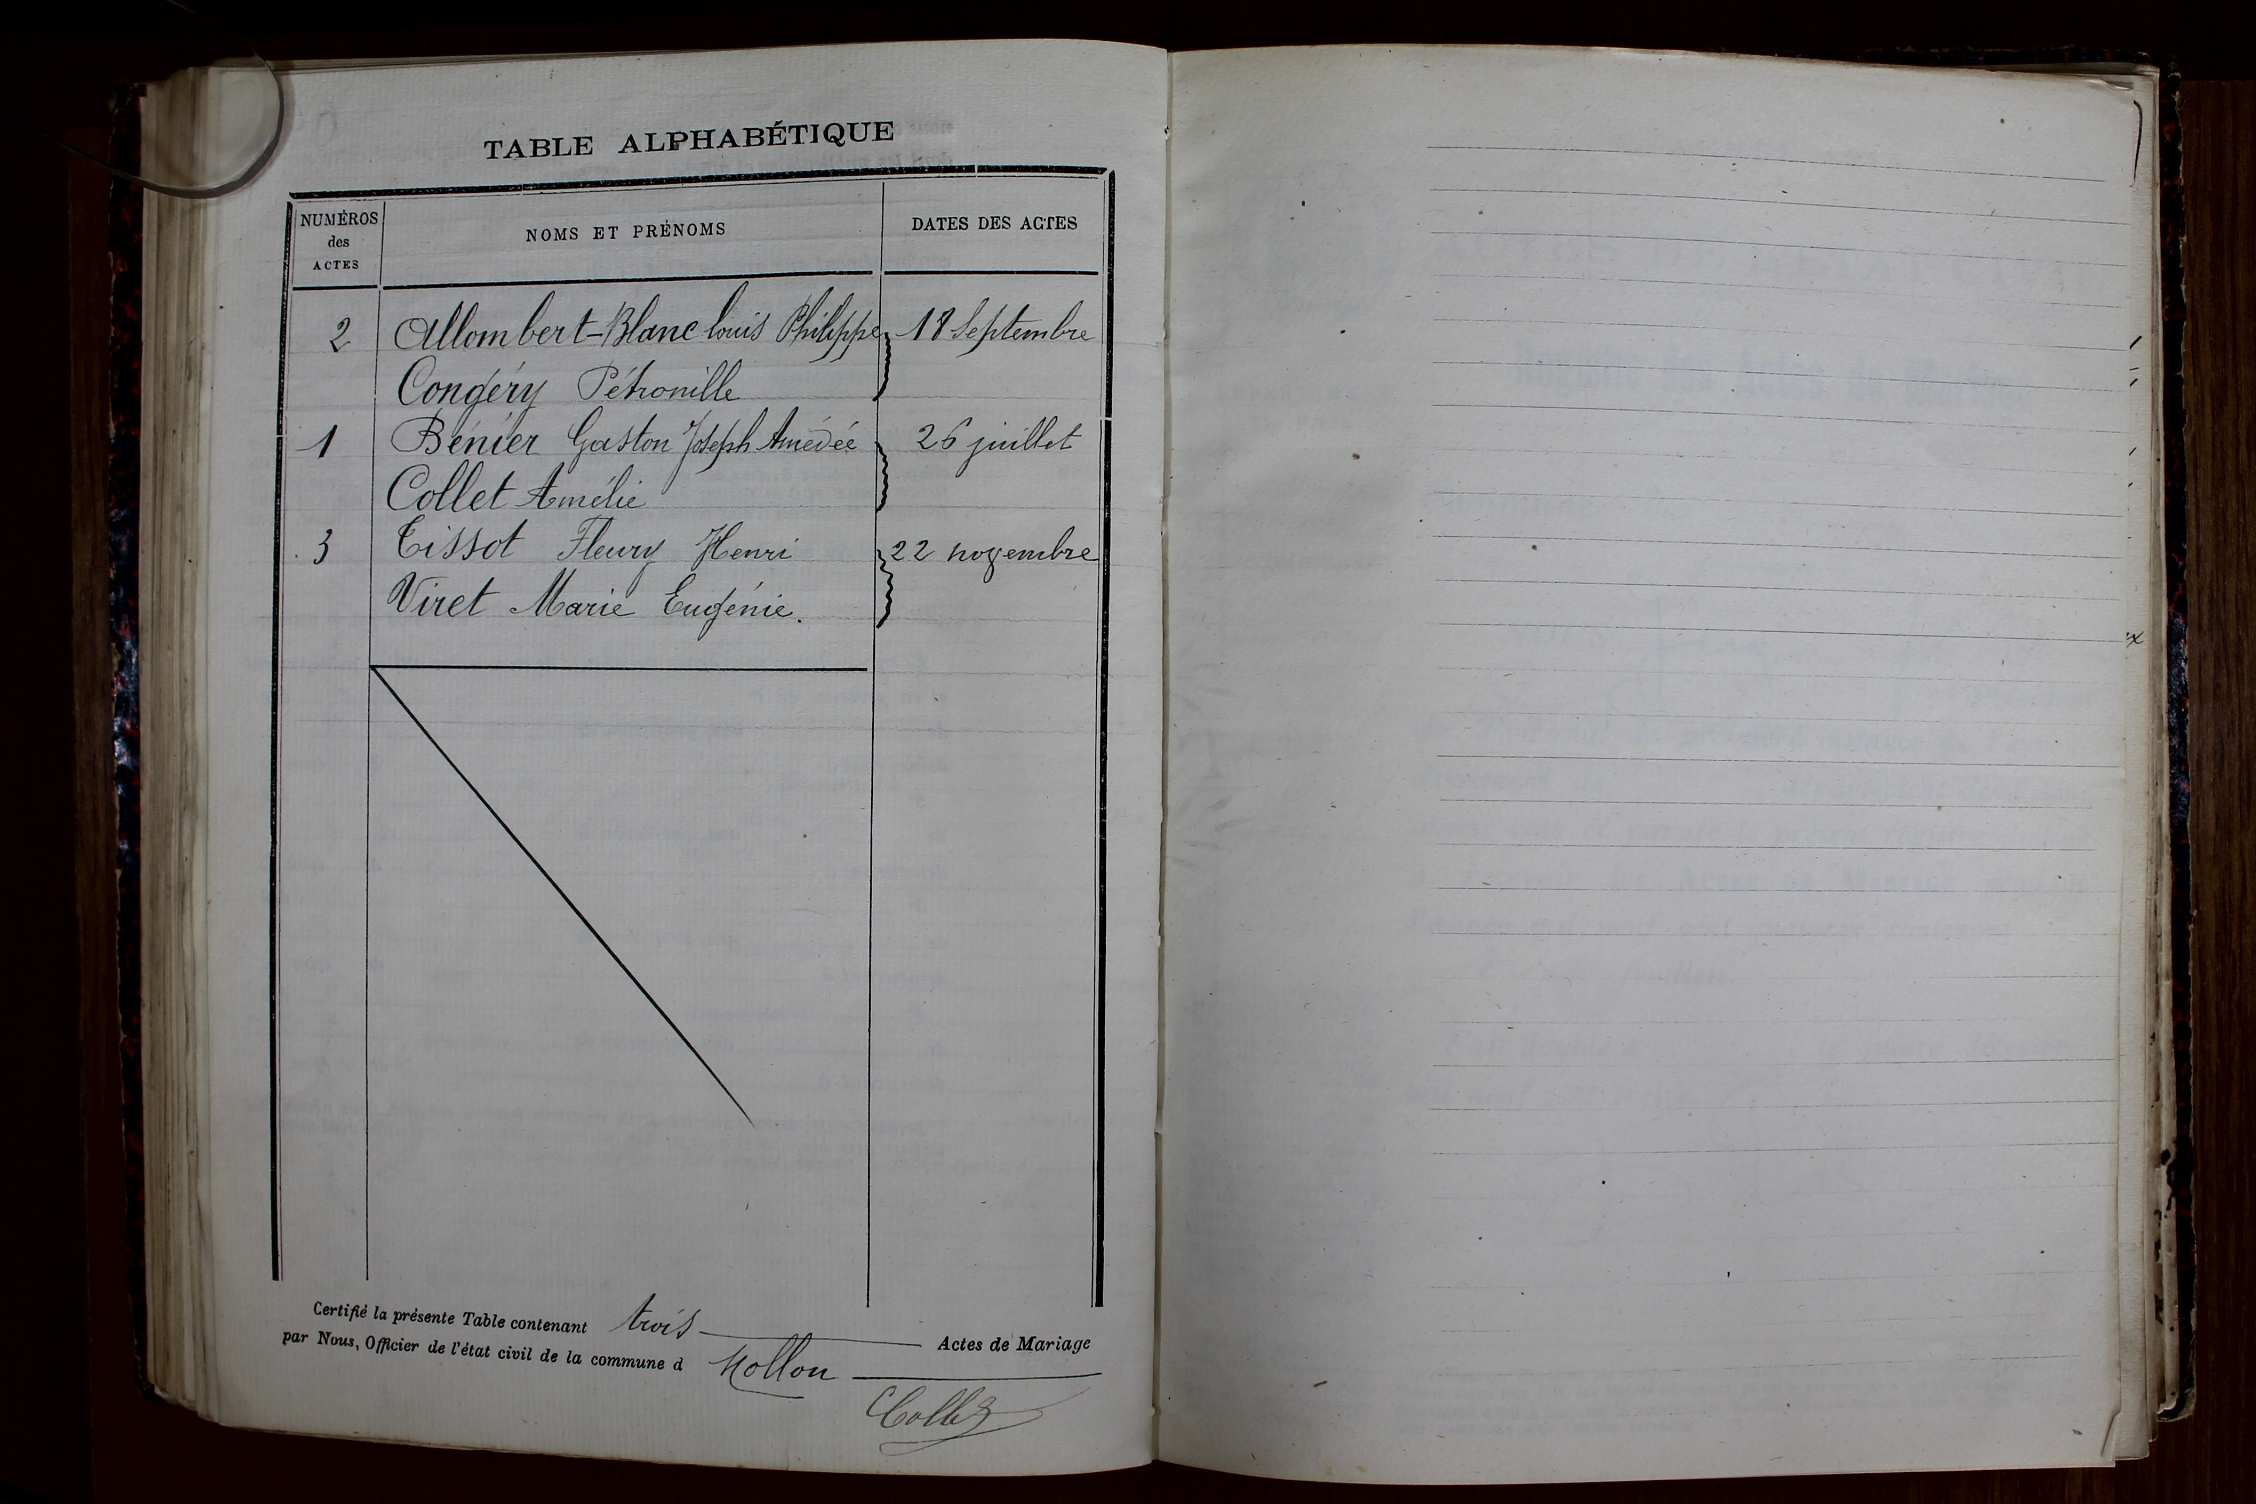 TABLE ALPHABÉTIQUE
NUMÉROS des ACTES
NOMS ET PRÉNOMS
DATES DES ACTES
2 Allombert-Blanc Louis Philippe 18 Septembre
Congéry Pétronille
1 Bénier Gaston Joseph Amédée 26 juillet
Collet Amélie
3 Tissot Fleury Henri 22 novembre
Viret Marie Eugénie.
Certifié la présente Table contenant trois Actes de Mariage
par Nous, Officier de l'état civil de la commune d Mollon